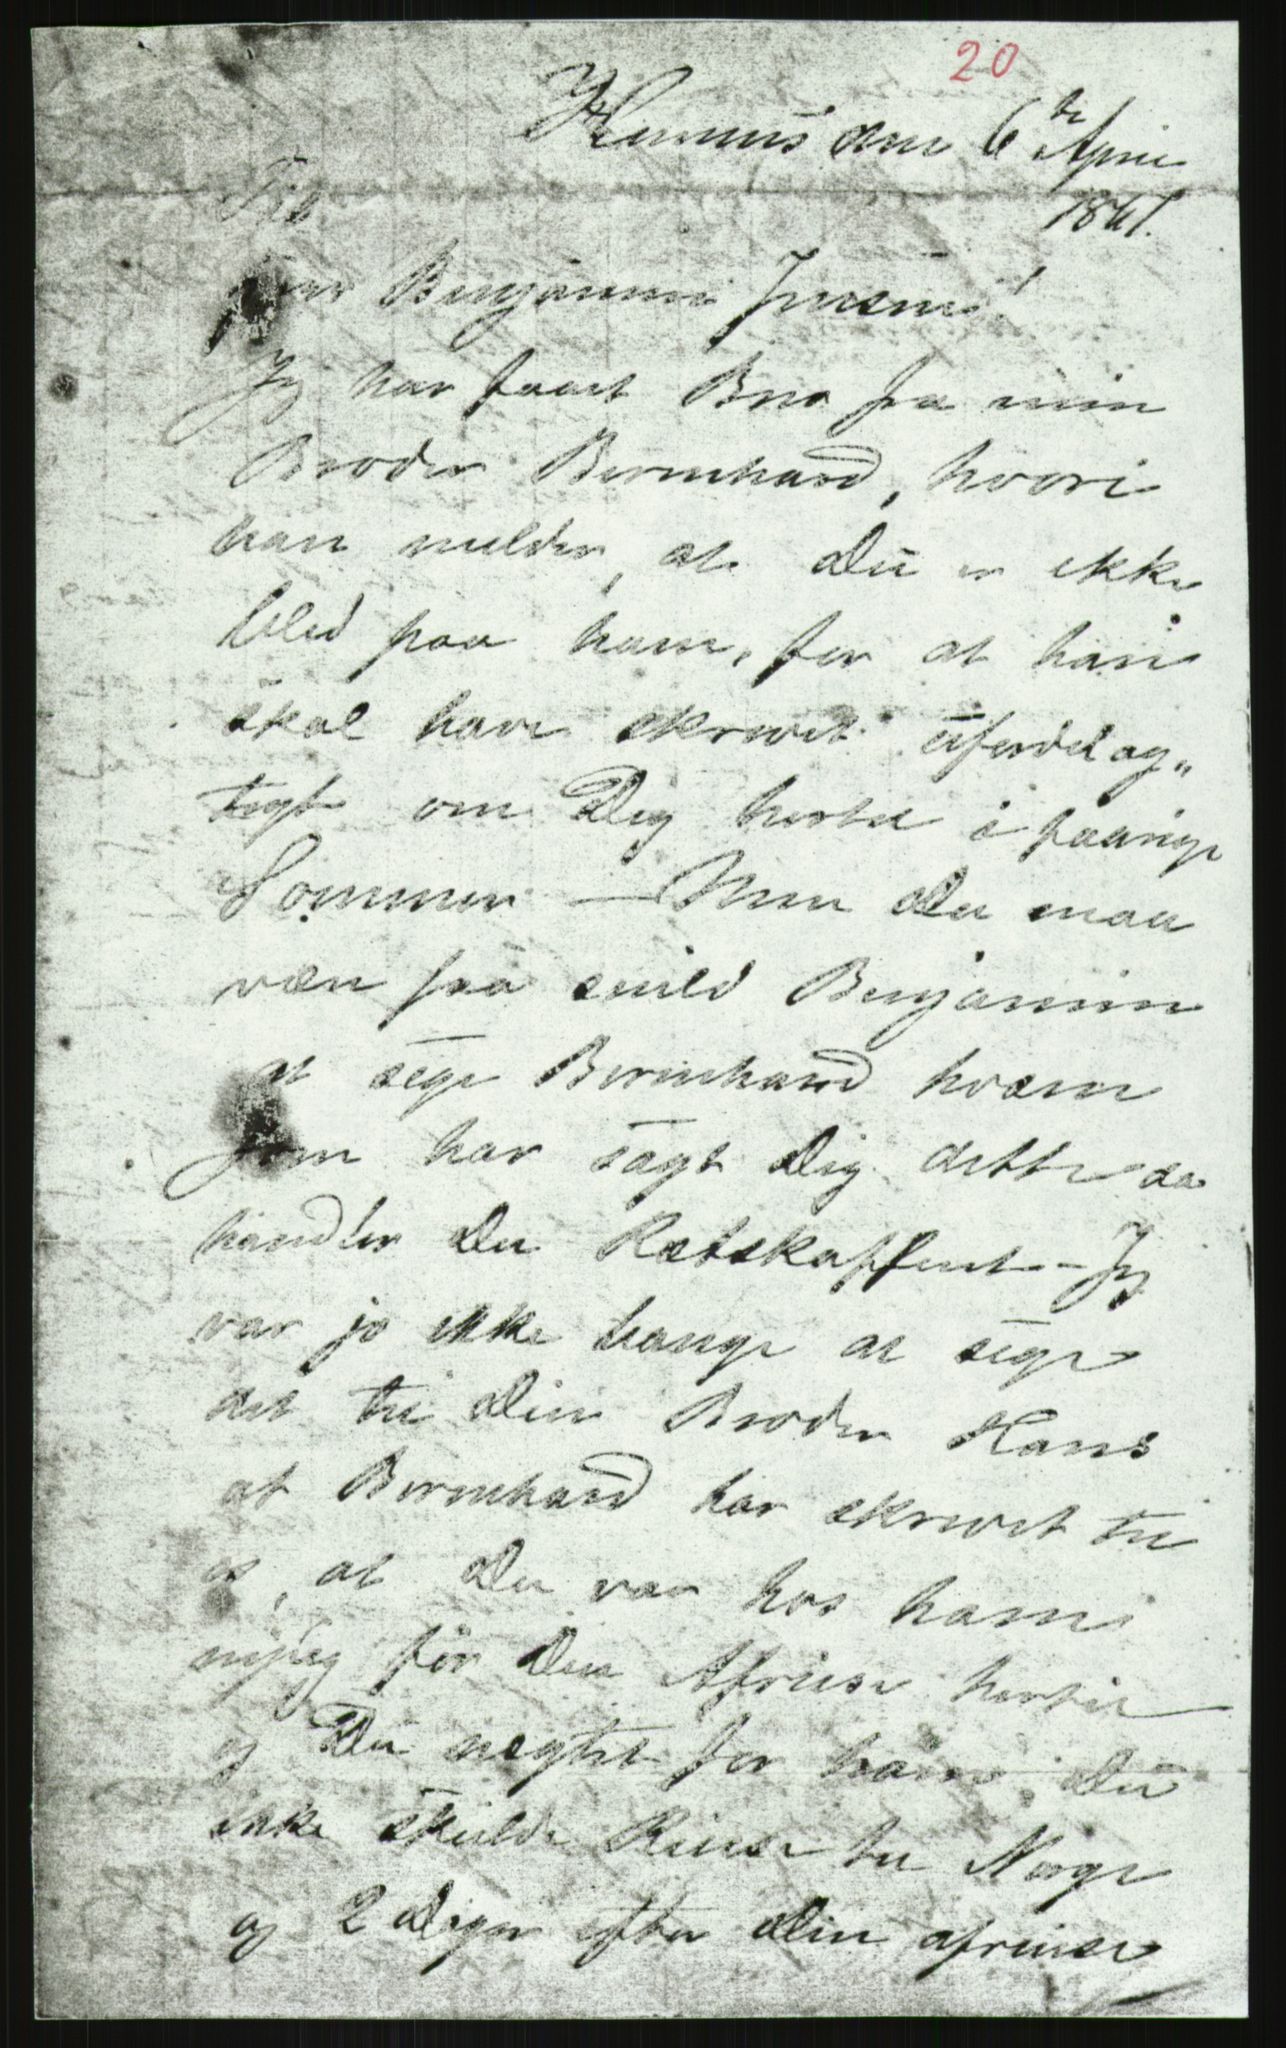 20
den 6te April
18
Til
Benjamin
Jeg har faaet Brev fra min
Broder Bernhard, hvori
han melder, at Du er ikke
blid paa ham, for at han
skal have skrevet ufordelag„
tigt om Dig hertil i faarige
Sommer — Men Du maa
være saa snild Benjamin
at sige Bernhard hvem
som har sagt Dig dette da
handler Du Retskaffent – Jeg
var jo ikke bange at sige
det til Din Broder Hans
at Bernhard har skrevet til
os, at Du var hos ham
før Din Afreise hertil
og Du nægtet for ham, Du
ikke skulde Reise til Norge
og 2 Dager efter Din afreise